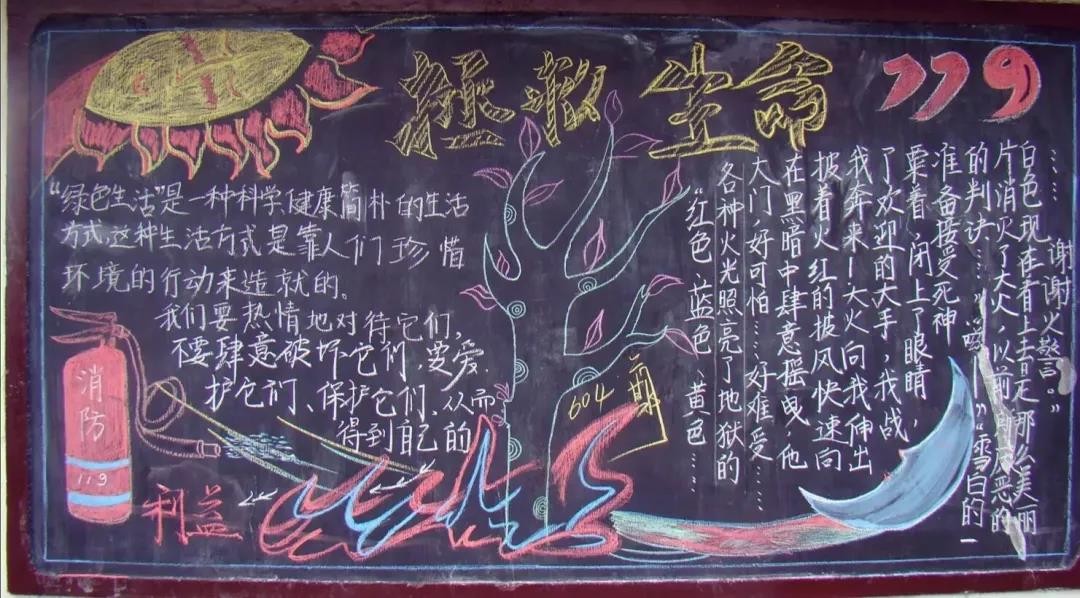 拯救生命 119
“绿色生活”是一种科学、健康简朴的生活
方式,这种生活方式是靠人们珍惜
环境的行动来造就的。
我们要热情地对待它们,
不要肆意破坏它们,要爱
护它们、保护它们、从而
得到自己的
利益
消防
119
604
“红色、蓝色、黄色……
各种火光照亮了地狱的
大门,好可怕……好难受……
在黑暗中肆意摇曳,他
披着火红的披风快速向
我奔来!大火向我伸出
了欢迎的大手,我战
栗着,闭上了眼睛,
准备接受死神
的判决……” “雪白的一
片消灭了大火,以前 恶的
白色现在看上去是那么美丽
……谢谢火警。”